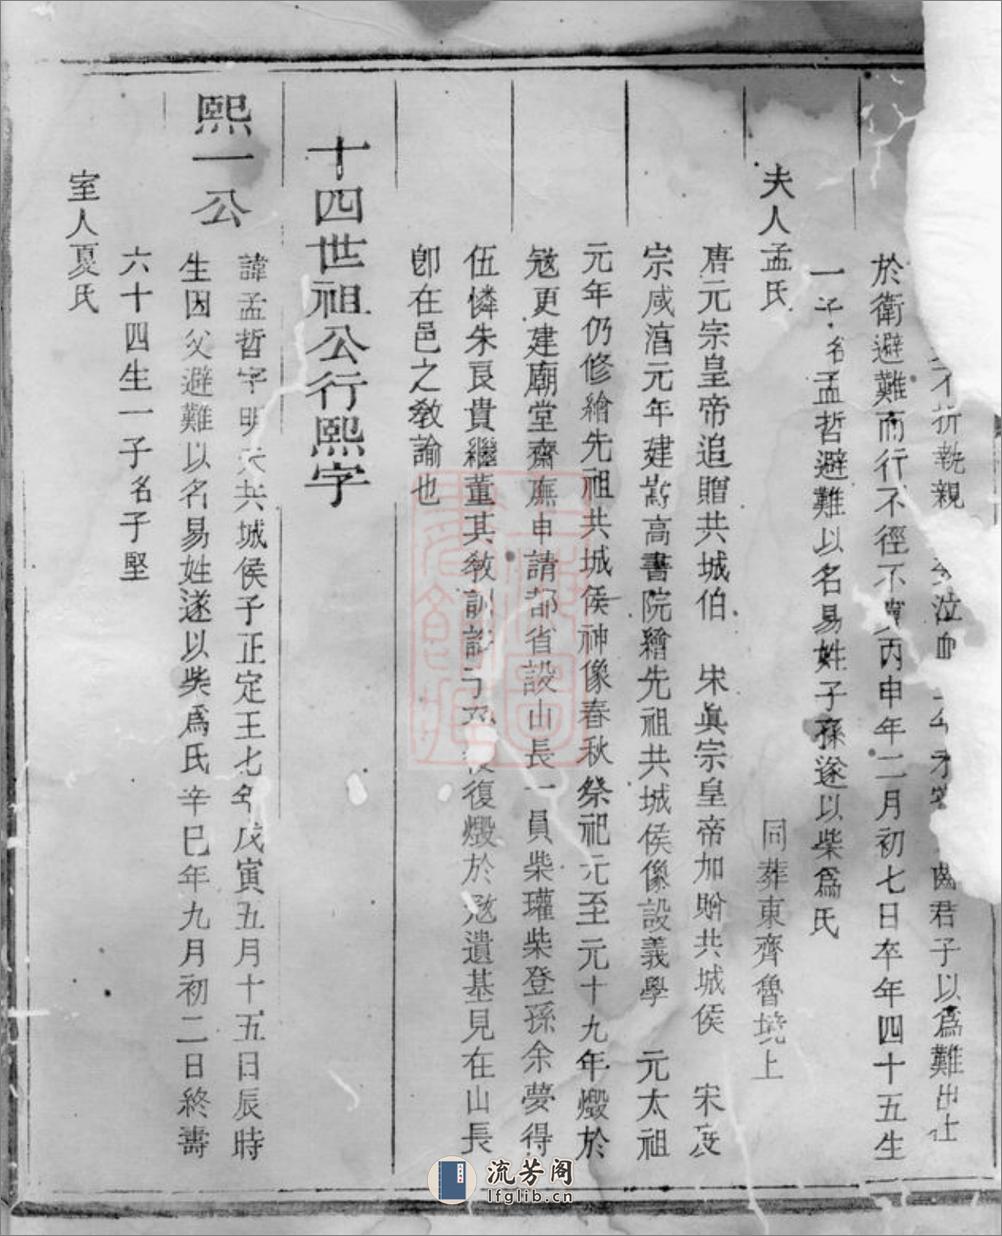 不折執親 泣血 君子以爲難出仕
於衛避難而行不徑不竇丙申年二月初七日卒年四十五生
一子名孟哲避難以名易姓子孫遂以柴爲氏
夫人孟氏 同葬東齊魯境上
唐元宗皇帝追贈共城伯 宋眞宗皇帝加贈共城侯 宋度
宗咸淳元年建嵩高書院繪先祖共城侯像設義學 元太祖
元年仍修繪先祖共城侯神像春秋祭祀元至元十九年燬於
寇更建廟堂齋廡申請都省設山長一員柴瓘柴登孫余夢得
伍憐朱良貴繼董其敎訓 復燬於寇遺基見在山長
卽在邑之敎諭也
十四世祖公行熙字
熙一公
諱孟哲字明 共城侯子正定王七年戊寅五月十五日辰時
生因父避難以名易姓遂以柴爲氏辛巳年九月初二日終壽
六十四生一子名子堅
室人夏氏
流芳阁
lfglib.cn